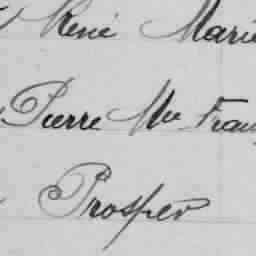 René Marie
Pierre Mie Fran
Prosper